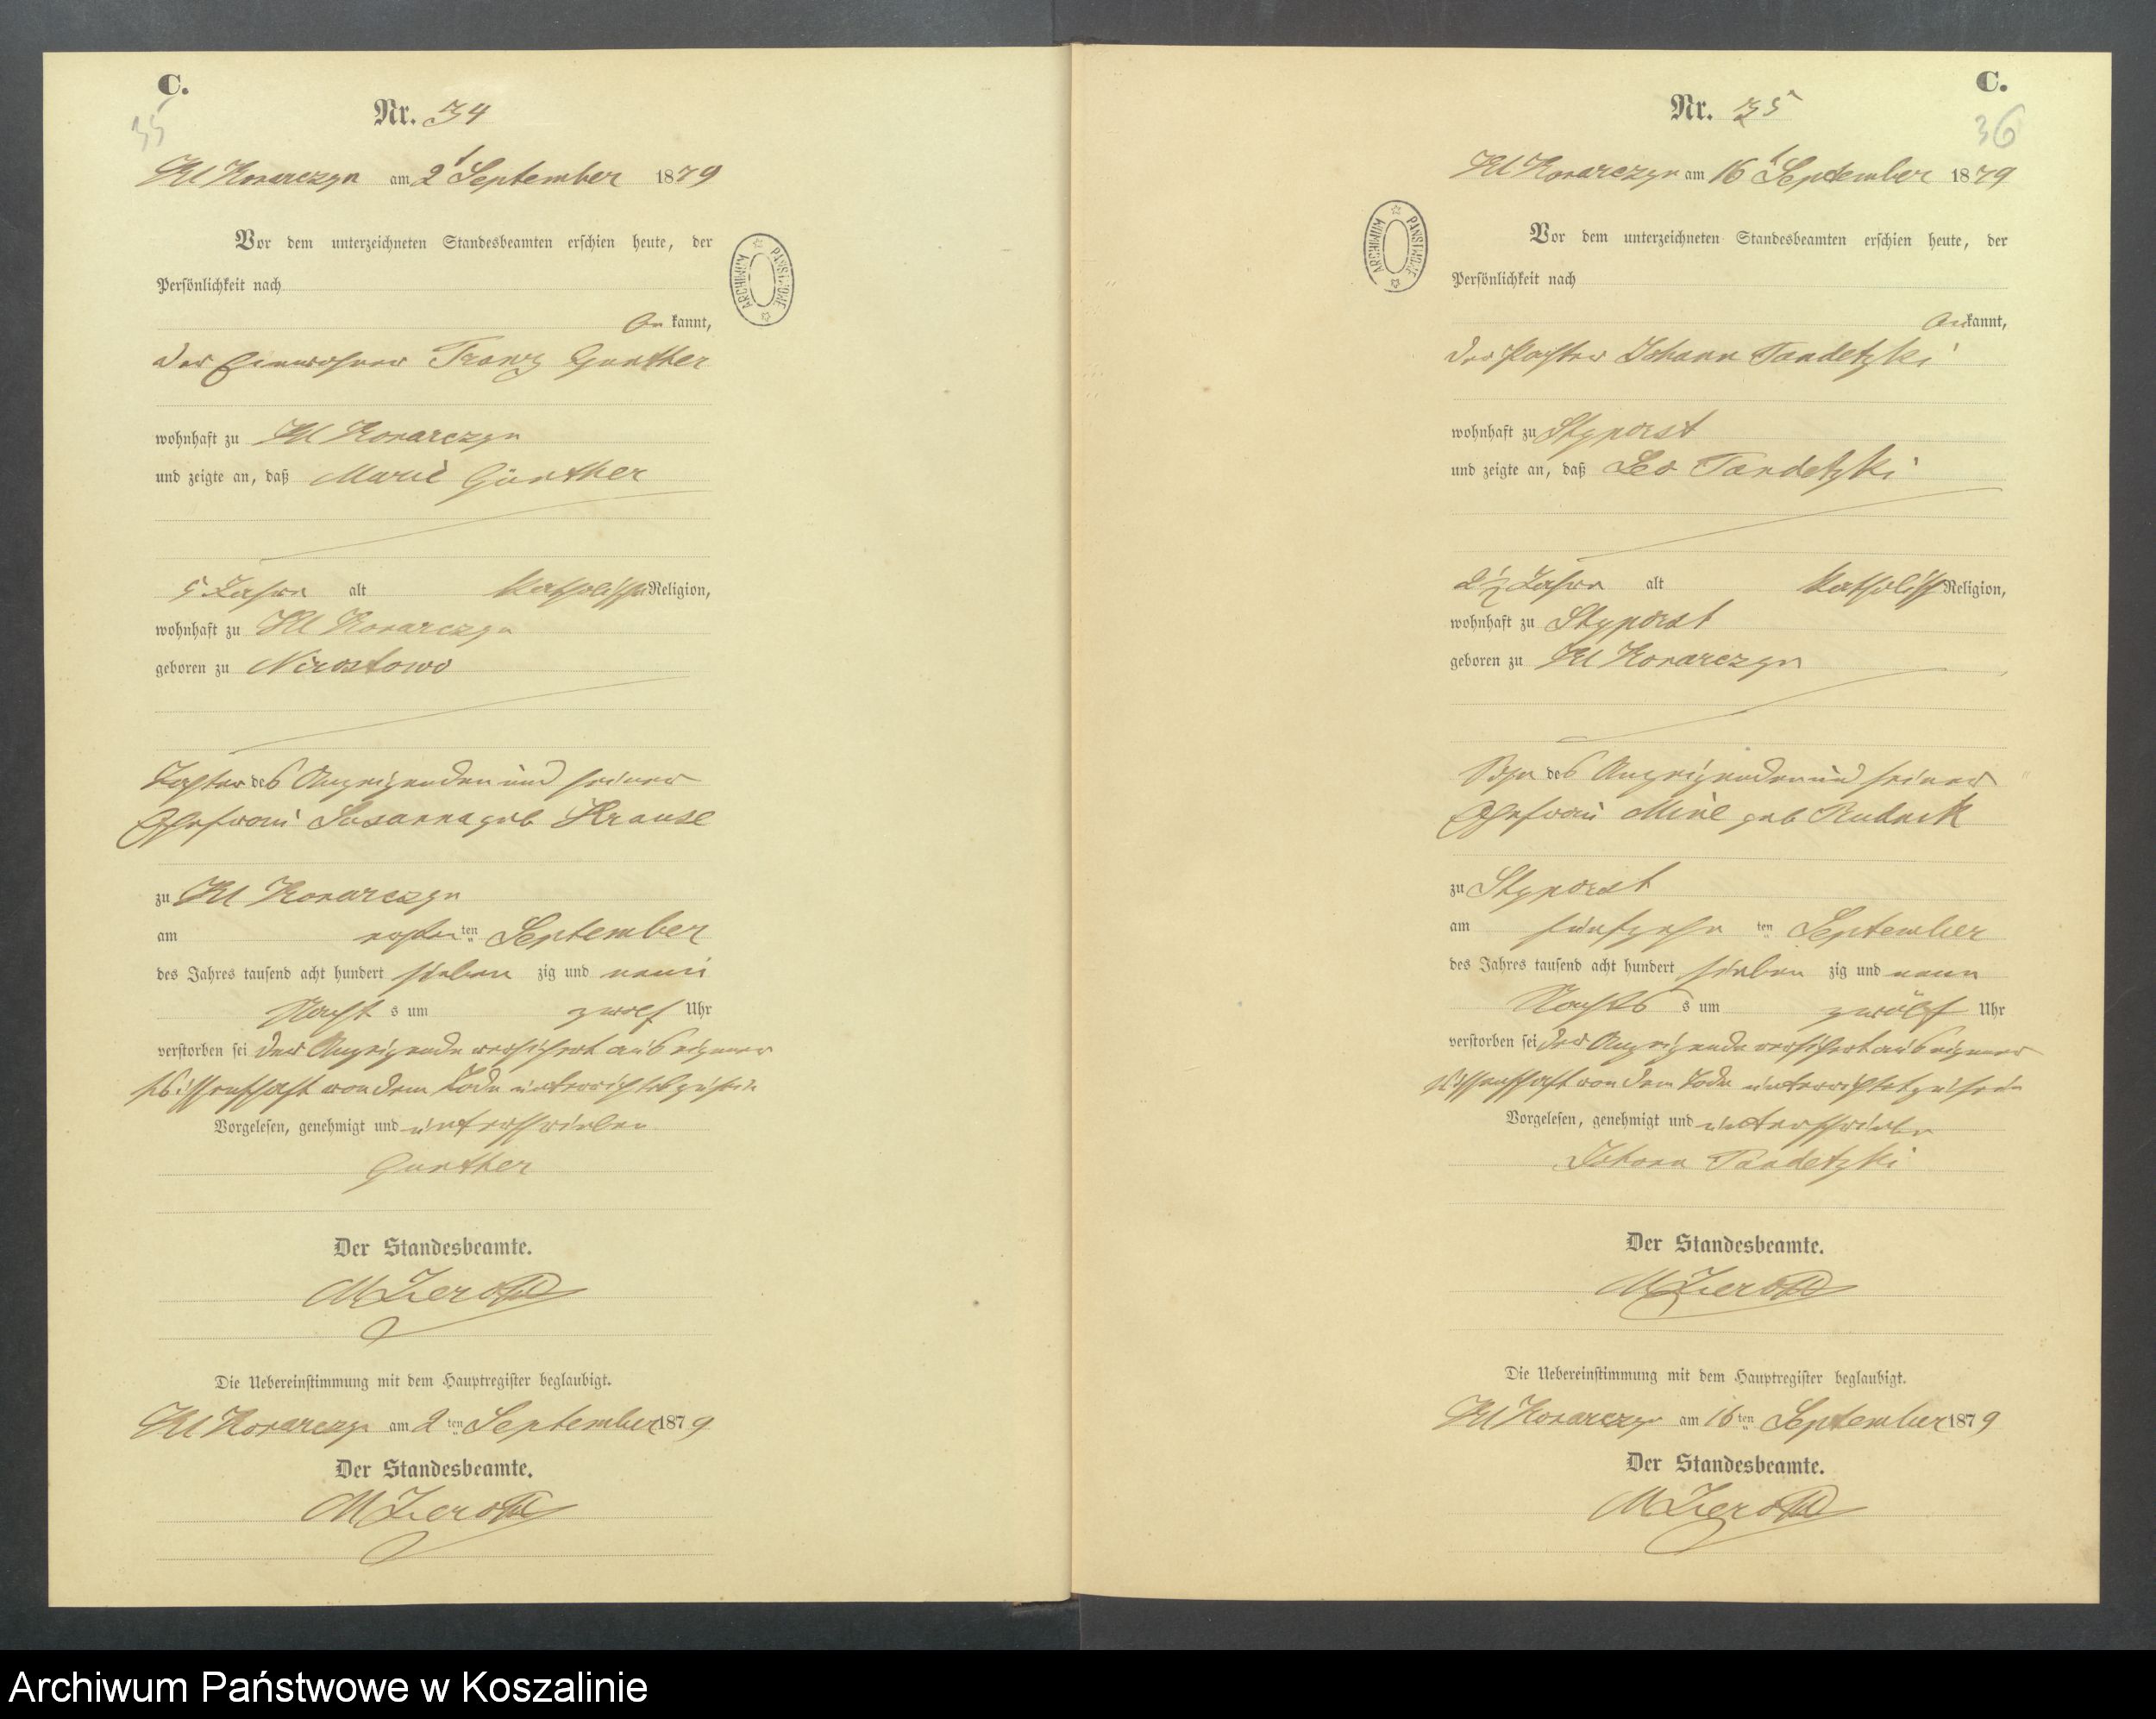 C.
35
Nr. 34
Kl Konarczyn am 2 September 1879
Vor dem unterzeichneten Standesbeamten erschien heute, der
Persönlichkeit nach
kannt,
der Einwohner Franz Gunther
wohnhaft zu Kl Konarczyn
und zeigte an, daß Marie Günther
5 Jahre alt katholischer Religion,
wohnhaft zu Kl Konarczyn
geboren zu
Tochter des Anzeigenden und seiner
Ehefrau Susanna geb Krause
zu Kl Konarczyn
am ersten ten September
des Jahres tausend acht hundert sieben zig und neun
Nacht s um zwölf Uhr
verstorben sei der Anzeigende versichert aus eigener
Wissenschaft von dem Tode unterrichtet zu sein
Vorgelesen, genehmigt und unterschrieben
Gunther
Der Standesbeamte.
Die Uebereinstimmung mit dem Hauptregister beglaubigt.
Kl Konarczyn am 2 ten September 1879
Der Standesbeamte.
ARCHIWUM PAŃSTWOWE
C.
36
Nr. 35
Kl Konarczyn am 16 September 1879
Vor dem unterzeichneten Standesbeamten erschien heute, der
Persönlichkeit nach
kannt,
der Pächter Johann Tandetzki
wohnhaft zu Glyporst
und zeigte an, daß Leo Tandetzki
2 1/2 Jahre alt katholisch Religion,
wohnhaft zu
geboren zu Kl Konarczyn
Sohn des Anzeigenden und seiner
Ehefrau Mine geb Rudnik
zu
am fünfzehn ten September
des Jahres tausend acht hundert sieben zig und neun
Nachts s um zwölf Uhr
verstorben sei der Anzeigende versichert aus eigener
Wissenschaft von dem Tode unterrichtet zu sein
Vorgelesen, genehmigt und unterschrieben
Johann Tandetzki
Der Standesbeamte.
Die Uebereinstimmung mit dem Hauptregister beglaubigt.
Kl Konarczyn am 16 ten September 1879
Der Standesbeamte.
ARCHIWUM PAŃSTWOWE
Archiwum Państwowe w Koszalinie